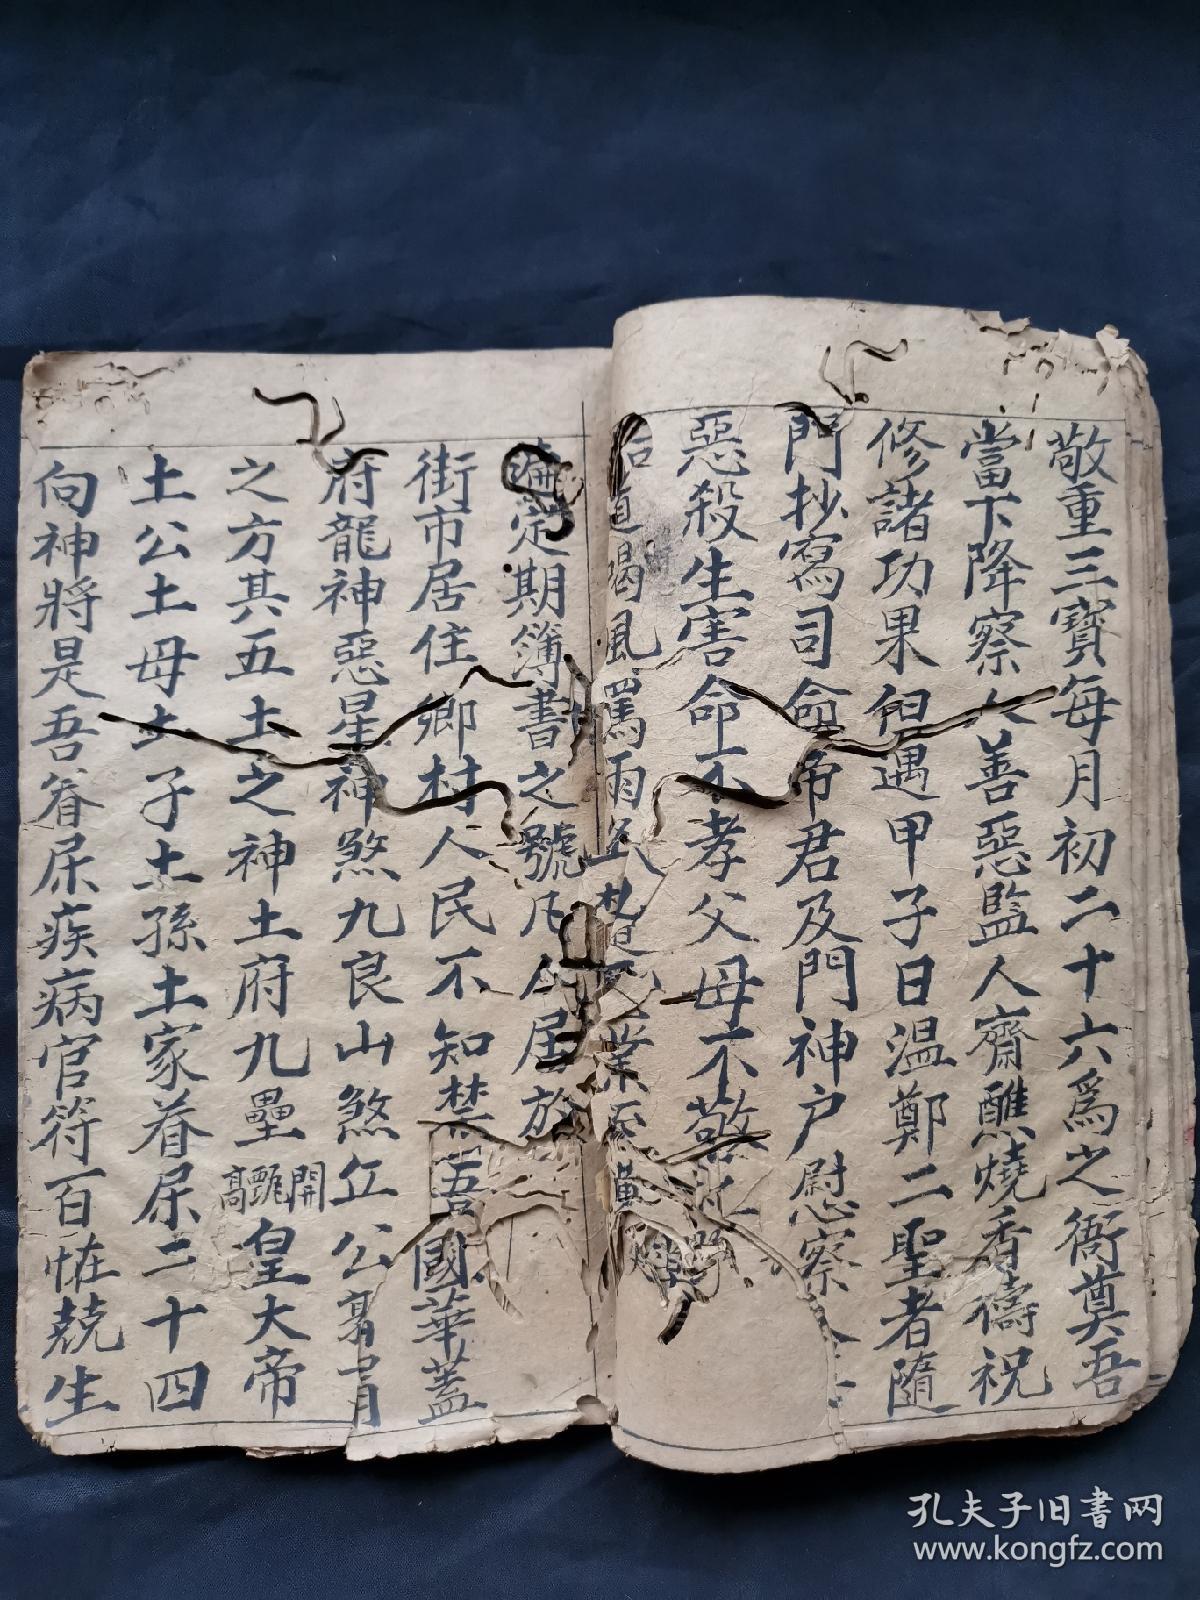 敬重三寳每月初二十六爲之衙奠吾
當下降察人善惡監人齋醮燒香禱祝
修諸功果但遇甲子日温鄭二聖者隨
門抄寫司命帝君及門神户尉察
惡殺生害命不孝父母不敬
道喝風罵雨
定期簿書之號凡人居於
街市居住鄉村人民不知禁吾國華蓋
府龍神惡星神煞九良山煞丘公
之方其五土之神土府九壘高甎開皇大帝
土公土母土子土孫土家眷屎二十四
向神將是吾眷屎疾病官符百怪兢生
孔夫子旧書网
www.kongfz.com